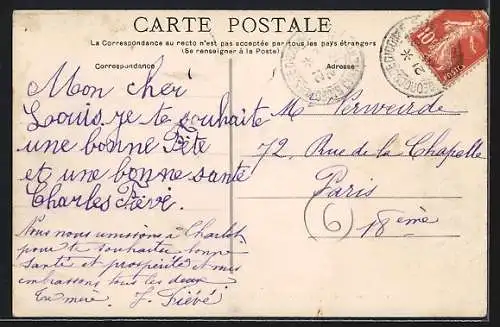 CARTE POSTALE
La Correspondance au recto n'est pas acceptée par tous les pays étrangers
(Se renseigner à la Poste)
Correspondance
Adresse
Mon cher
Louis, je te souhaite
une bonne Fête
et une bonne santé
Charles Fièvé.
Nous nous unissons à Charlot
pour te souhaiter bonne
santé et prospérité et
embrassons tous les deux
Ta mère. F. Fiévé
M Verweirde
72, Rue de la Chapelle
Paris
6
18ème
10